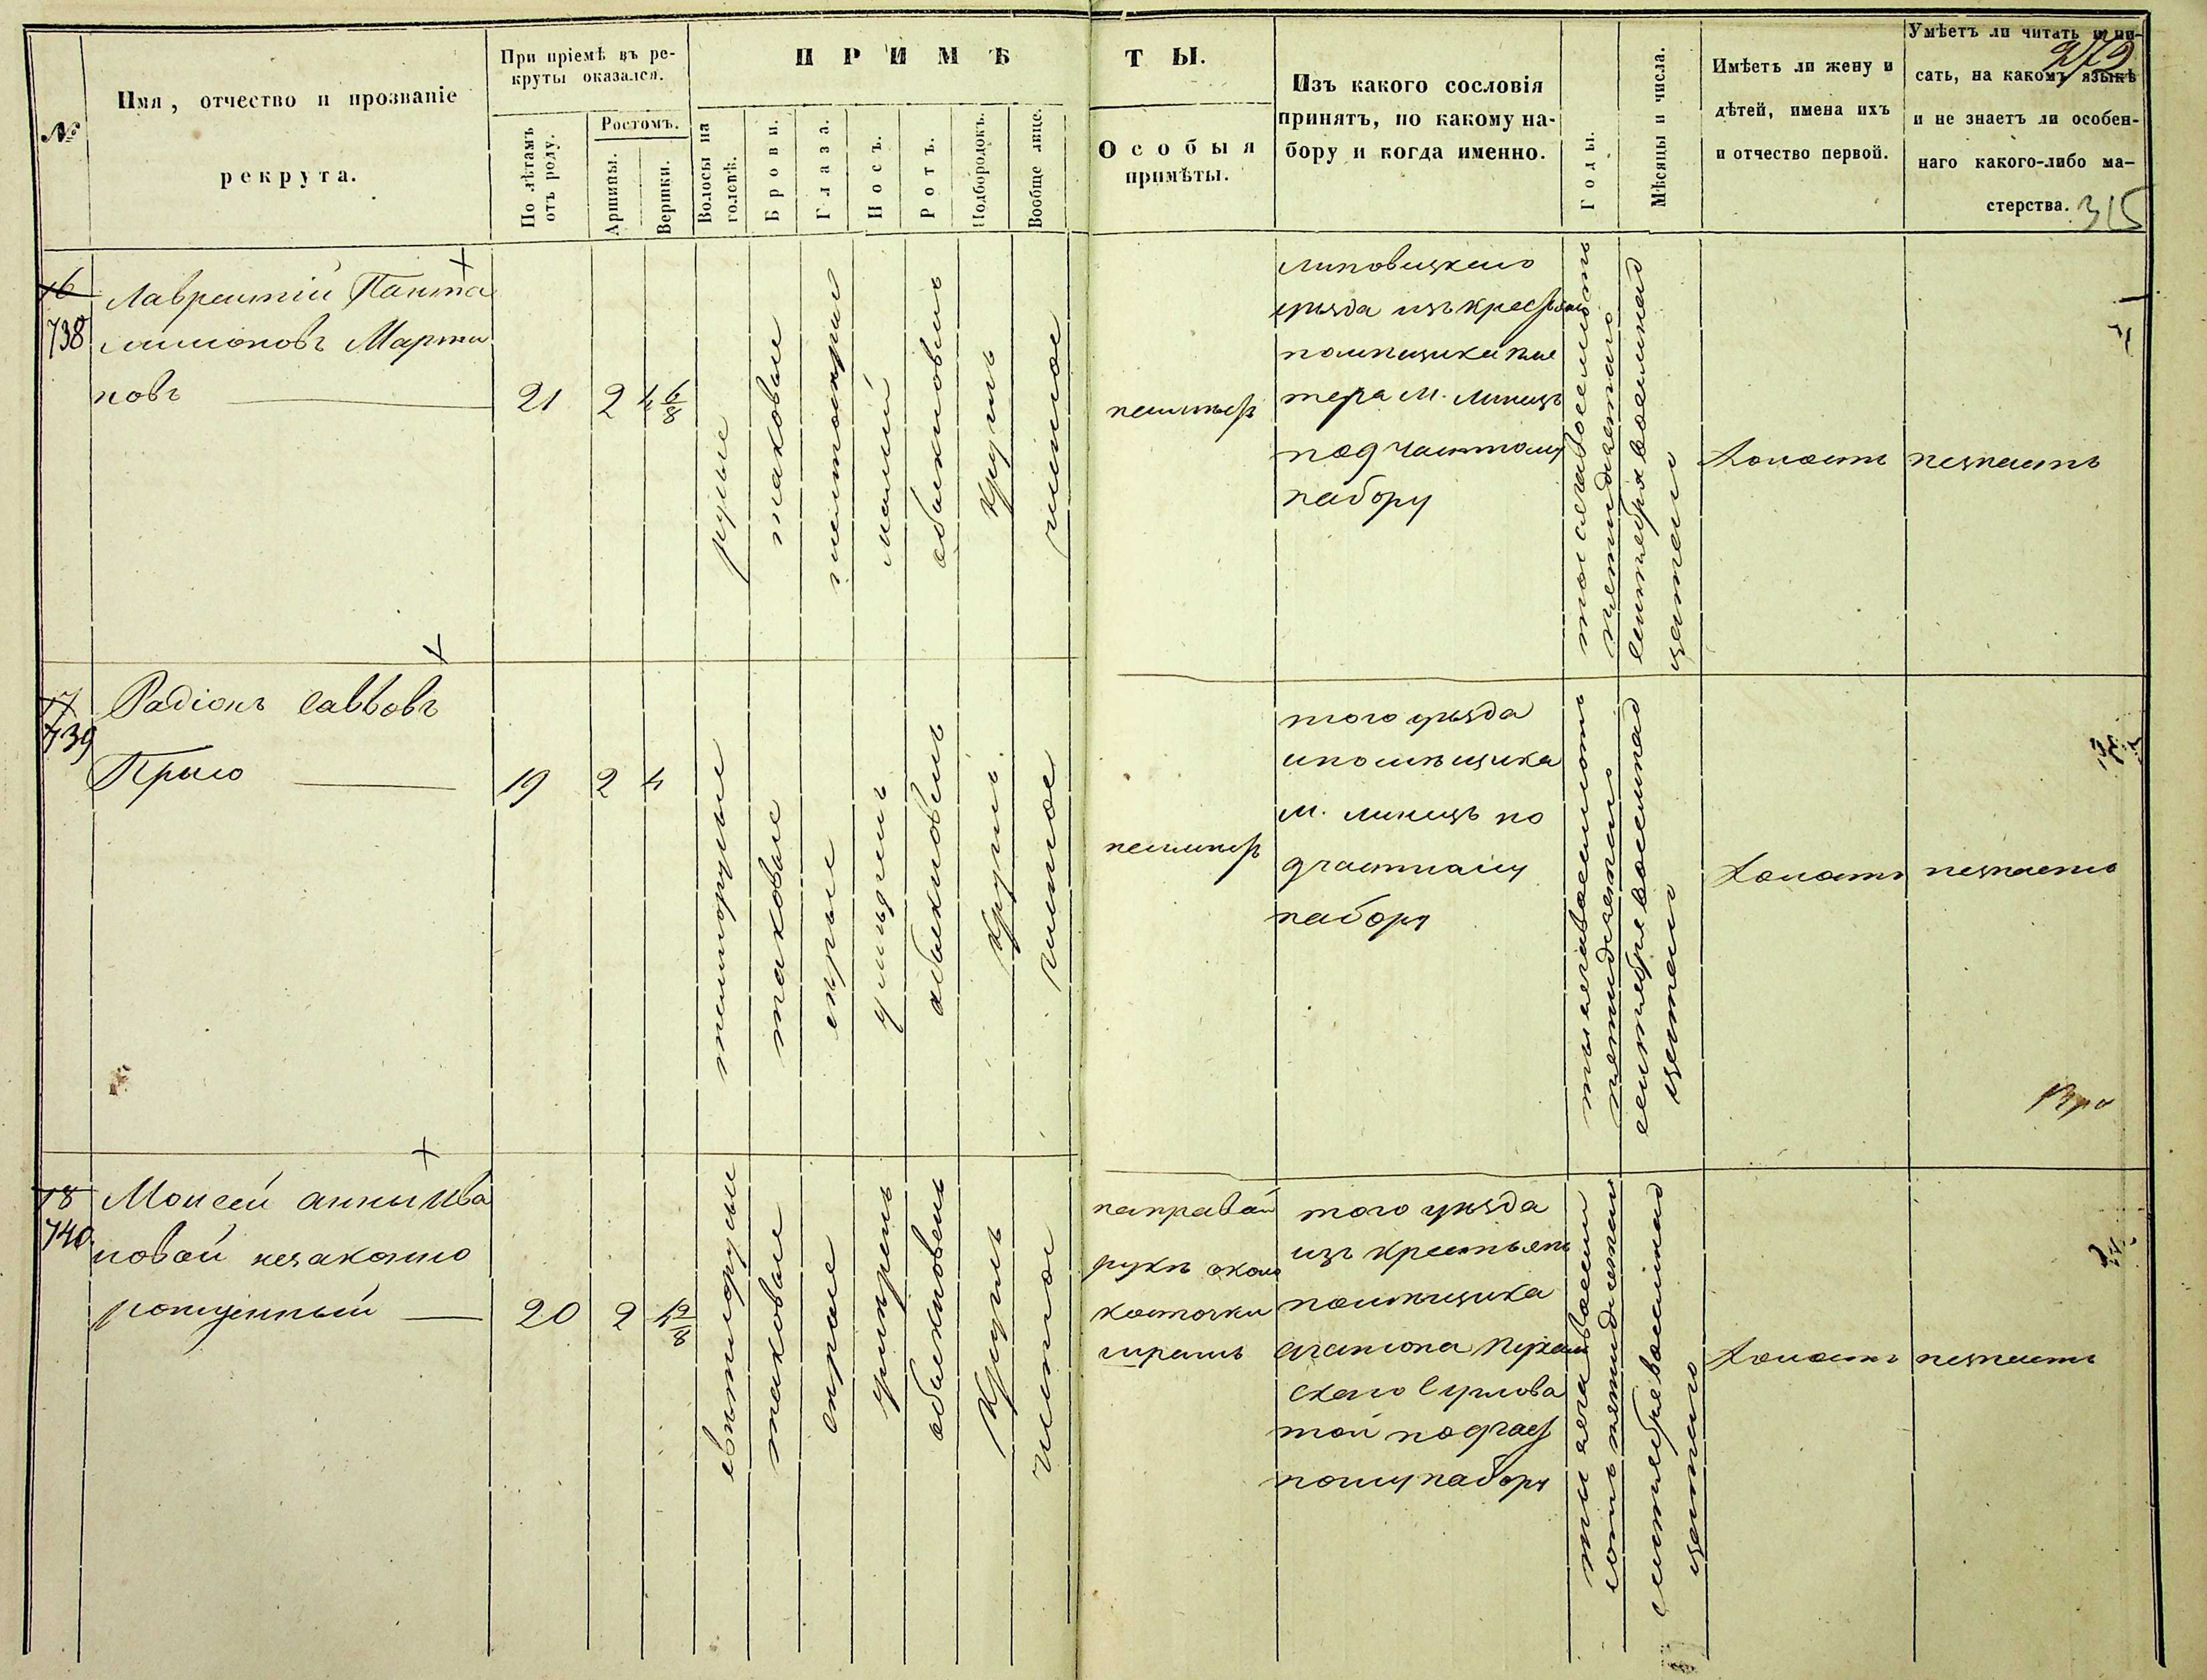 №
Имя, отчество и прозваніе
рекрута.
При пріемѣ въ ре-
круты оказался.
По лѣтамъ
отъ роду.
Ростомъ.
Аршины.
Вершки.
ПРИМѢ
ТЫ.
Волосы на
головѣ.
Брови.
Глаза.
Носъ.
Ротъ.
Подбородокъ.
Вообще лице.
Особыя
примѣты.
Изъ какого сословія
принятъ, по какому на-
бору и когда именно.
Годы.
Мѣсяцы и числа.
Имѣетъ ли жену и
дѣтей, имена ихъ
и отчество первой.
Умѣетъ ли читать и пи-
сать, на какомъ языкѣ
и не знаетъ ли особен-
наго какого-либо ма-
стерства.
315
16
738
Лаврентій Панта
лимоновъ Марты
новъ
21
2
4 6/8
русые
таковые
малый
обыкновенъ
круглъ
чистое
неимѣетъ
Липовецкаго
уѣзда изъ крестьянъ
помѣщика
м. Линецъ
под частному
набору
тысяча восемьсотъ
пятидесятаго
сентября восемнад
цатаго
холостъ
незнаетъ
17
739
Радіонъ Саввовъ
19
2
4
темнорусые
таковые
сѣрые
обыкновенъ
круглъ
чистое
неимѣетъ
того уѣзда
и помѣщика
м. Линецъ по
дчастному
набору
тысяча восемьсотъ
пятидесятаго
сентября восемнад
цатаго
холостъ
незнаетъ
18
740
Моисей Анны Ива
новой незаконно
рожденный
20
2
4 2/8
свѣтлорусые
таковые
сѣрые
обыкновенъ
круглъ
чистое
направой
рукѣ около
косточки
шрамъ
того уѣзда
изъ крестьянъ
помѣщика
той подчаст
ному набору
тысяча восемь
сотъ пятидесятаго
сентября восемнад
цатаго
холостъ
незнаетъ